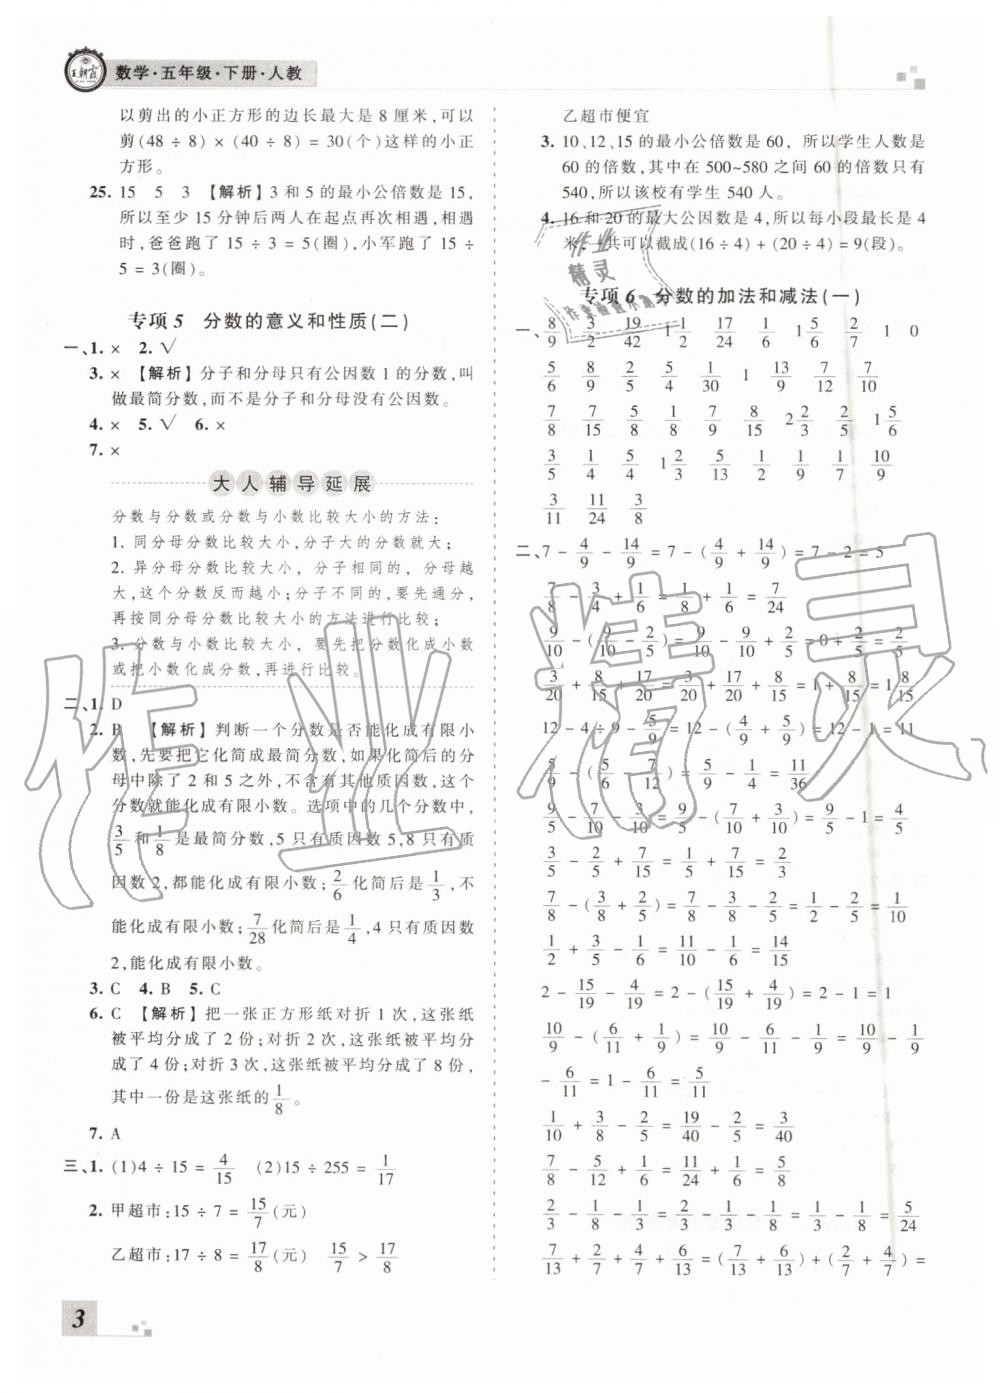 王朝霞
数学·五年级·下册·人教
以剪出的小正方形的边长最大是 8 厘米,可以
剪(48 ÷ 8) × (40 ÷ 8) = 30(个)这样的小正
方形。
25. 15 5 3 【解析】3 和 5 的最小公倍数是 15,
所以至少 15 分钟后两人在起点再次相遇,相遇
时,爸爸跑了 15 ÷ 3 = 5(圈),小军跑了 15 ÷
5 = 3(圈)。
专项 5 分数的意义和性质(二)
一、1. × 2. √
3. × 【解析】分子和分母只有公因数 1 的分数,叫
做最简分数,而不是分子和分母没有公因数。
4. × 5. √ 6. ×
7. ×
大人辅导延展
分数与分数或分数与小数比较大小的方法:
1. 同分母分数比较大小,分子大的分数就大;
2. 异分母分数比较大小,分子相同的,分母越
大,这个分数反而越小;分子不同的,要先通分,
再按同分母分数比较大小的方法进行比较;
3. 分数与小数比较大小,要先把分数化成小数
或把小数化成分数,再进行比较。
二、1. D
2. B 【解析】判断一个分数是否能化成有限小
数,先要把它化简成最简分数,如果化简后的分
母中除了 2 和 5 之外,不含有其他质因数,这个
分数就能化成有限小数。选项中的几个分数中,
3/5 和 1/8 是最简分数,5 只有质因数 5,8 只有质
因数 2,都能化成有限小数;2/6 化简后是 1/3,不
能化成有限小数;7/28 化简后是 1/4,4 只有质因数
2,能化成有限小数。
3. C 4. B 5. C
6. C 【解析】把一张正方形纸对折 1 次,这张纸
被平均分成了 2 份;对折 2 次,这张纸被平均分
成了 4 份;对折 3 次,这张纸被平均分成了 8 份,
其中一份是这张纸的 1/8。
7. A
三、1. (1)4 ÷ 15 = 4/15 (2)15 ÷ 255 = 1/17
2. 甲超市:15 ÷ 7 = 15/7(元)
乙超市:17 ÷ 8 = 17/8(元) 15/7 > 17/8
3
乙超市便宜
3. 10、12、15 的最小公倍数是 60, 所以学生人数是
60 的倍数,其中在 500~580 之间 60 的倍数只有
540,所以该校有学生 540 人。
4. 16 和 20 的最大公因数是 4,所以每小段最长是 4
米,一共可以截成(16 ÷ 4) + (20 ÷ 4) = 9(段)。
专项 6 分数的加法和减法(一)
一、8/9 3/2 19/42 1 1/2 17/24 1/6 1 5/6 2/7 1 0
5/6 8/9 2/5 5/4 1/30 1 13/9 7/12 7/10
7/8 7/15 5/8 1/8 7/9 8/15 2 2/3 2/5 1 5/6
3/5 1/4 4/5 1 2/3 5/13 1/2 1/9 1/1 10/9
3/11 11/24 3/8
二、7 - 4/9 - 14/9 = 7 - (4/9 + 14/9) = 7 - 2 = 5
7/8 - 3/4 + 1/6 = 1/8 + 1/6 = 7/24
9/10 - (9/10 - 2/5) = 9/10 - 9/10 + 2/5 = 0 + 2/5 = 2/5
3/20 + 8/15 + 17/20 = 3/20 + 17/20 + 8/15 = 1 + 8/15 = 1 8/15
12 - 4 ÷ 9 - 5/9 = 12 - (4/9 + 5/9) = 12 - 1 = 11
9/5 - 7/10 - 3/10 = 9/5 - (7/10 + 3/10) = 9/5 - 1 = 4/5
3/5 - 2/5 + 7/15 = 1/5 + 7/15 = 2/3
7/8 - (3/8 + 2/5) = 7/8 - 3/8 - 2/5 = 1/2 - 2/5 = 1/10
1/2 + 3/5 - 1/6 = 11/10 - 1/6 = 14/15
2 - 15/19 - 4/19 = 2 - (15/19 + 4/19) = 2 - 1 = 1
10/9 - (6/11 + 1/9) = 10/9 - 6/11 - 1/9 = 10/9 - 1/9
- 6/11 = 1 - 6/11 = 5/11
1/10 + 3/8 - 2/5 = 19/40 - 2/5 = 3/40
7/8 - 5/12 + 1/6 = 11/24 + 1/6 = 5/8
2/3 - 1/8 - 1/3 = 2/3 - 1/3 - 1/8 = 1/3 - 1/8 = 5/24
7/13 + 2/7 + 4/7 + 6/13 = (7/13 + 6/13) + (2/7 + 4/7) =
作业精灵